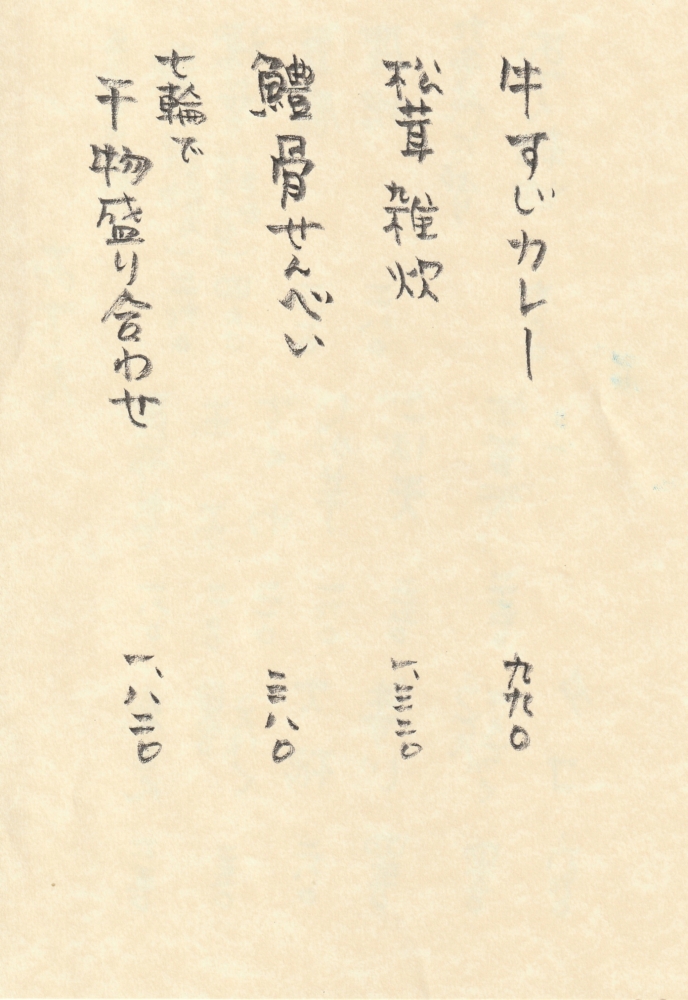 牛すじカレー 九九〇
松茸雑炊 一、三二〇
鱧骨せんべい 三八〇
七輪で
干物盛り合わせ 一、八二〇